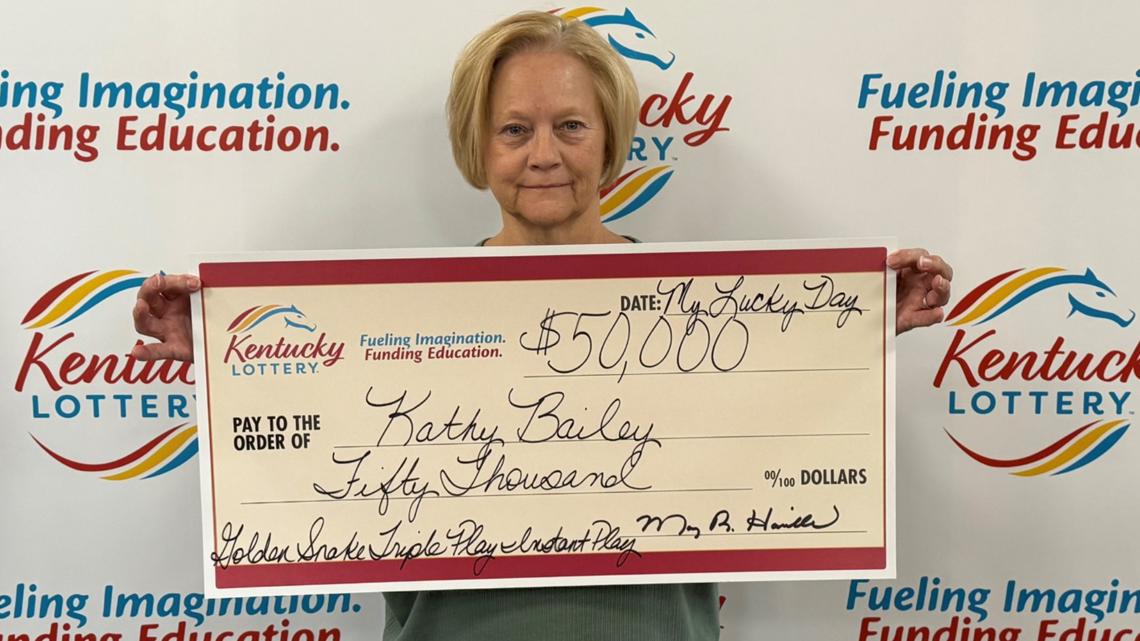 ing Imagination.
Funding Education.
cky
RY™
Fueling Imagi
Funding Edu
Kentuc
LOTTERY
Kentucky
LOTTERY™
Kentucky
LOTTERY™
Fueling Imagination.
Funding Education.
DATE: My Lucky Day
$50,000
PAY TO THE
ORDER OF Kathy Bailey
Fifty Thousand 00/100 DOLLARS
Golden Snake Triple Play Instant Play
eling Imagination.
nding Education.
Fueling Imagin
Funding Educ